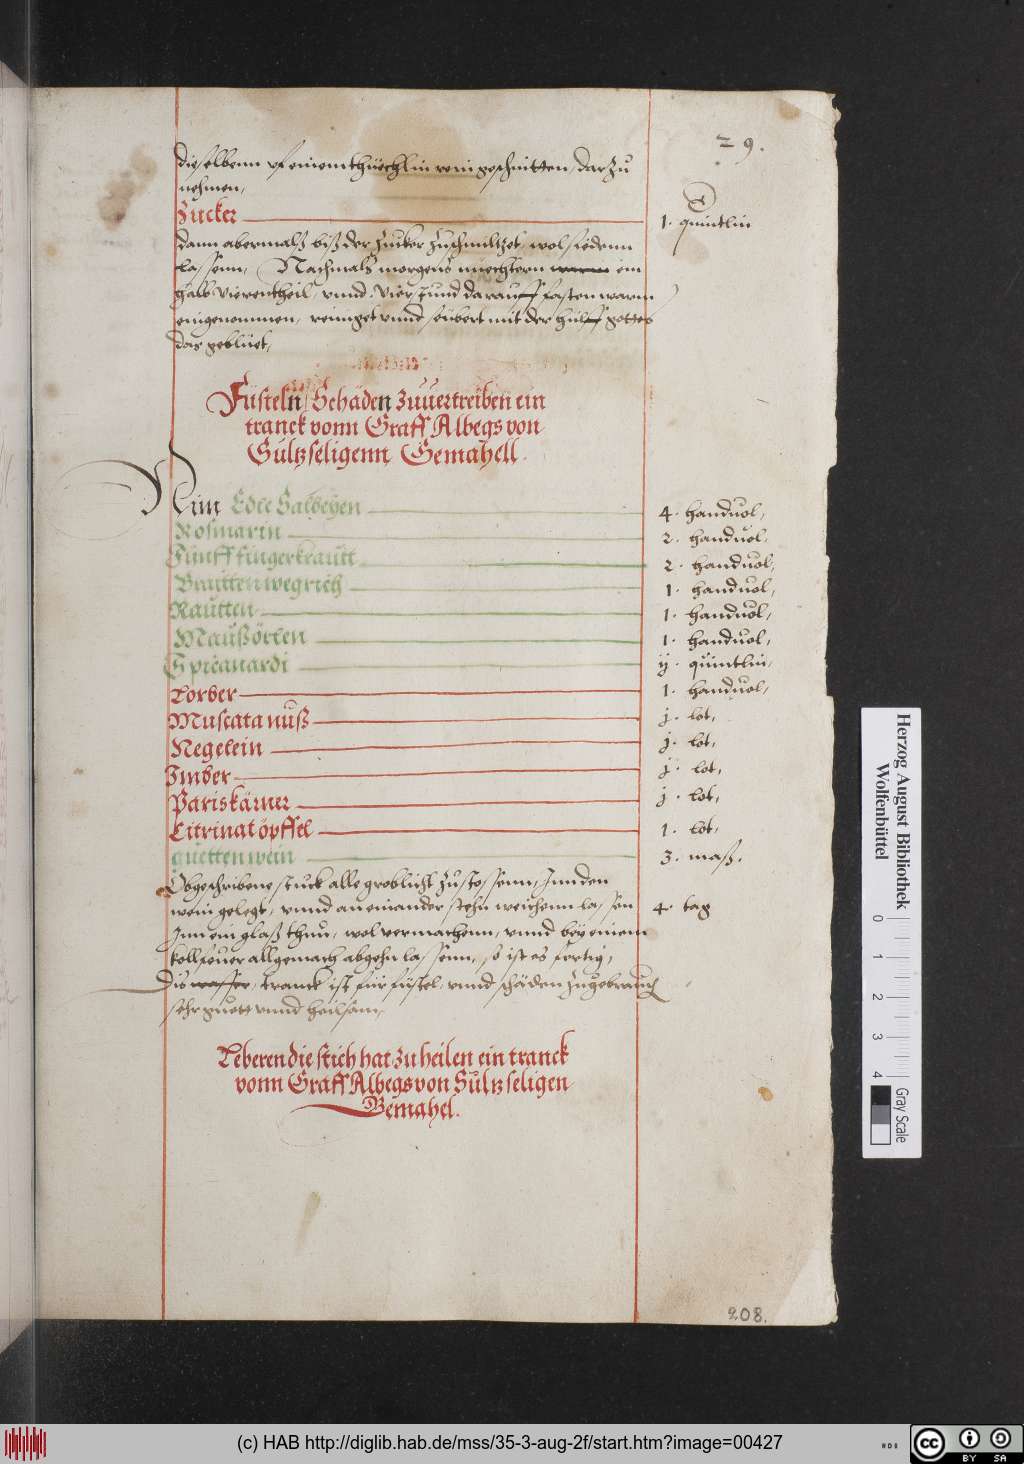 29.
dieselbenn uf einem thüechlin rein geschnitten, darzu
nehmen,
Zucker 1. quintlin
dann abermalß biß der Zucker zuschmiltzet, wol siedenn
lassenn, Nachmals morgens nüechtern warm ein
halb vierentheil, vnnd vier stund darauff fasten warm
eingenommen, reiniget vnnd seübert mit der hülff gottes
das geblüet,
Füsteln Schäden zuuertreiben ein
tranck vonn Graff Albegs von
Sültz seligenn Gemahell.
Nim Edle Salbeyen 4. handuol,
Rosmarin 2. handuol,
Fünff fingerkrautt 2. handuol,
Braitten wegrich 1. handuol,
Rautten 1. handuol,
Maußörlen 1. handuol,
Spicanardi ij. quintlin,
Lorber 1. handuol,
Muscata nuß j. lot,
Negelein j. lot,
Imber j. lot,
Pariskärner j. lot,
Citrinat öpffel 1. lot,
guetten wein 3. maß.
Obgeschribene stuck alle groblicht zustossenn, Inn den
wein gelegt, vnnd an einander stehn weichenn lassen 4. tag
Inn ein glaß thun, wol vermachenn, vnnd bey einem
kollfeuer allgemach abgehn lassenn, so ist es fertig,
Dis wasser, tranck ist für füstel, vnnd schäden zugebrauch
sehr guett vnnd heilsam,
Leberen die stich hat zu heilen ein tranck
vonn Graff Albegs von Sültz seligen
Gemahel.
208.
Herzog August Bibliothek
Wolfenbüttel
0 1 2 3 4
Gray Scale
(c) HAB http://diglib.hab.de/mss/35-3-aug-2f/start.htm?image=00427
cc BY SA